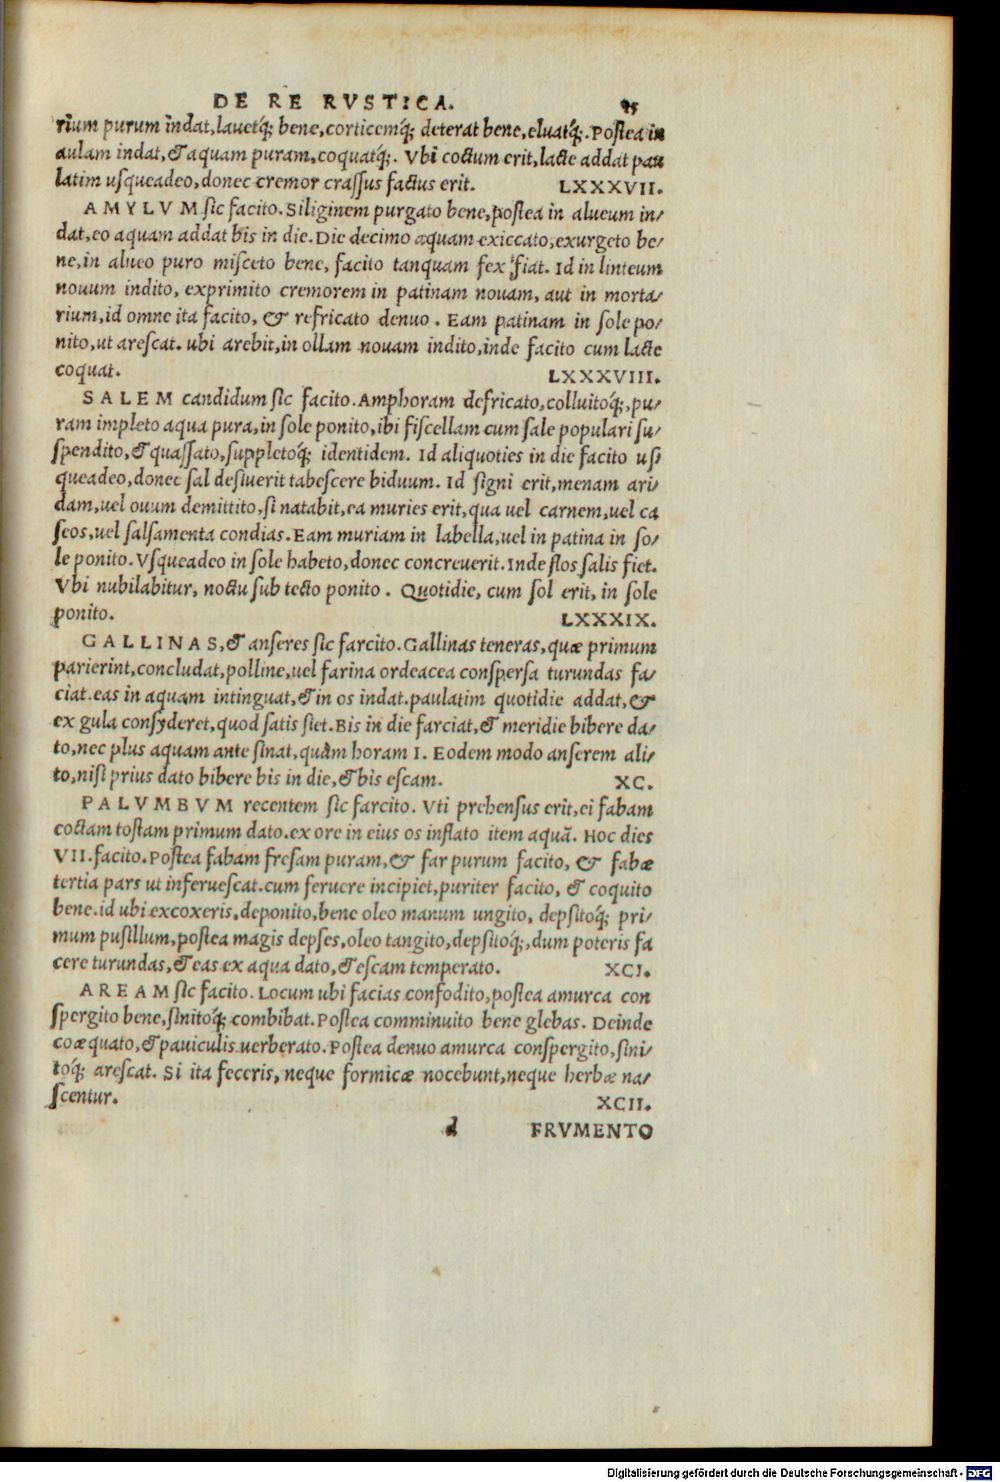 DE RE RVSTICA. 25
rium purum indat, lauetq́; bene, corticemq́; deterat bene, eluatq́;. Postea in
aulam indat, & aquam puram, coquatq́;. Vbi coctum erit, lacte addat pau
latim usqueadeo, donec cremor crassus factus erit. LXXXVII.
AMYLVM sic facito. Siliginem purgato bene, postea in alueum in/
dat, eo aquam addat bis in die. Die decimo aquam exiccato, exurgeto be/
ne, in alueo puro misceto bene, facito tanquam fex fiat. Id in linteum
nouum indito, exprimito cremorem in patinam nouam, aut in morta/
rium, id omne ita facito, & refricato denuo. Eam patinam in sole po/
nito, ut arescat. ubi arebit, in ollam nouam indito, inde facito cum lacte
coquat. LXXXVIII.
SALEM candidum sic facito. Amphoram defricato, colluitoq́;, pu/
ram impleto aqua pura, in sole ponito, ibi fiscellam cum sale populari su/
spendito, & quassato, suppletoq́; identidem. Id aliquoties in die facito usi
queadeo, donec sal desiuerit tabescere biduum. Id signi erit, menam ari/
dam, uel ouum demittito, si natabit, ea muries erit, qua uel carnem, uel ca
seos, uel salsamenta condias. Eam muriam in labella, uel in patina in so/
le ponito. Vsqueadeo in sole habeto, donec concreuerit. Inde flos salis fiet.
Vbi nubilabitur, noctu sub tecto ponito. Quotidie, cum sol erit, in sole
ponito. LXXXIX.
GALLINAS, & anseres sic farcito. Gallinas teneras, quæ primum
parierint, concludat, polline, uel farina ordeacea conspersa turundas fa/
ciat. eas in aquam intinguat, & in os indat. paulatim quotidie addat, &
ex gula consyderet, quod satis siet. Bis in die farciat, & meridie bibere da/
to, nec plus aquam ante sinat, quàm horam I. Eodem modo anserem ali/
to, nisi prius dato bibere bis in die, & bis escam. XC.
PALVMBVM recentem sic farcito. Vti prehensus erit, ei fabam
coctam tostam primum dato. ex ore in eius os inflato item aquā. Hoc dies
VII. facito. Postea fabam fresam puram, & far purum facito, & fabæ
tertia pars ut inferuescat. cum feruere incipiet, puriter facito, & coquito
bene. id ubi excoxeris, deponito, bene oleo manum ungito, depsitoq́; pri/
mum pusillum, postea magis depses, oleo tangito, depsitoq́;, dum poteris fa
cere turundas, & eas ex aqua dato, & escam temperato. XCI.
AREAM sic facito. Locum ubi facias confodito, postea amurca con
spergito bene, sinitoq́; combibat. Postea comminuito bene glebas. Deinde
coæquato, & pauiculis uerberato. Postea denuo amurca conspergito, sini/
toq́; arescat. Si ita feceris, neque formicæ nocebunt, neque herbæ na/
scentur. XCII.
d FRVMENTO
Digitalisierung gefördert durch die Deutsche Forschungsgemeinschaft - DFG